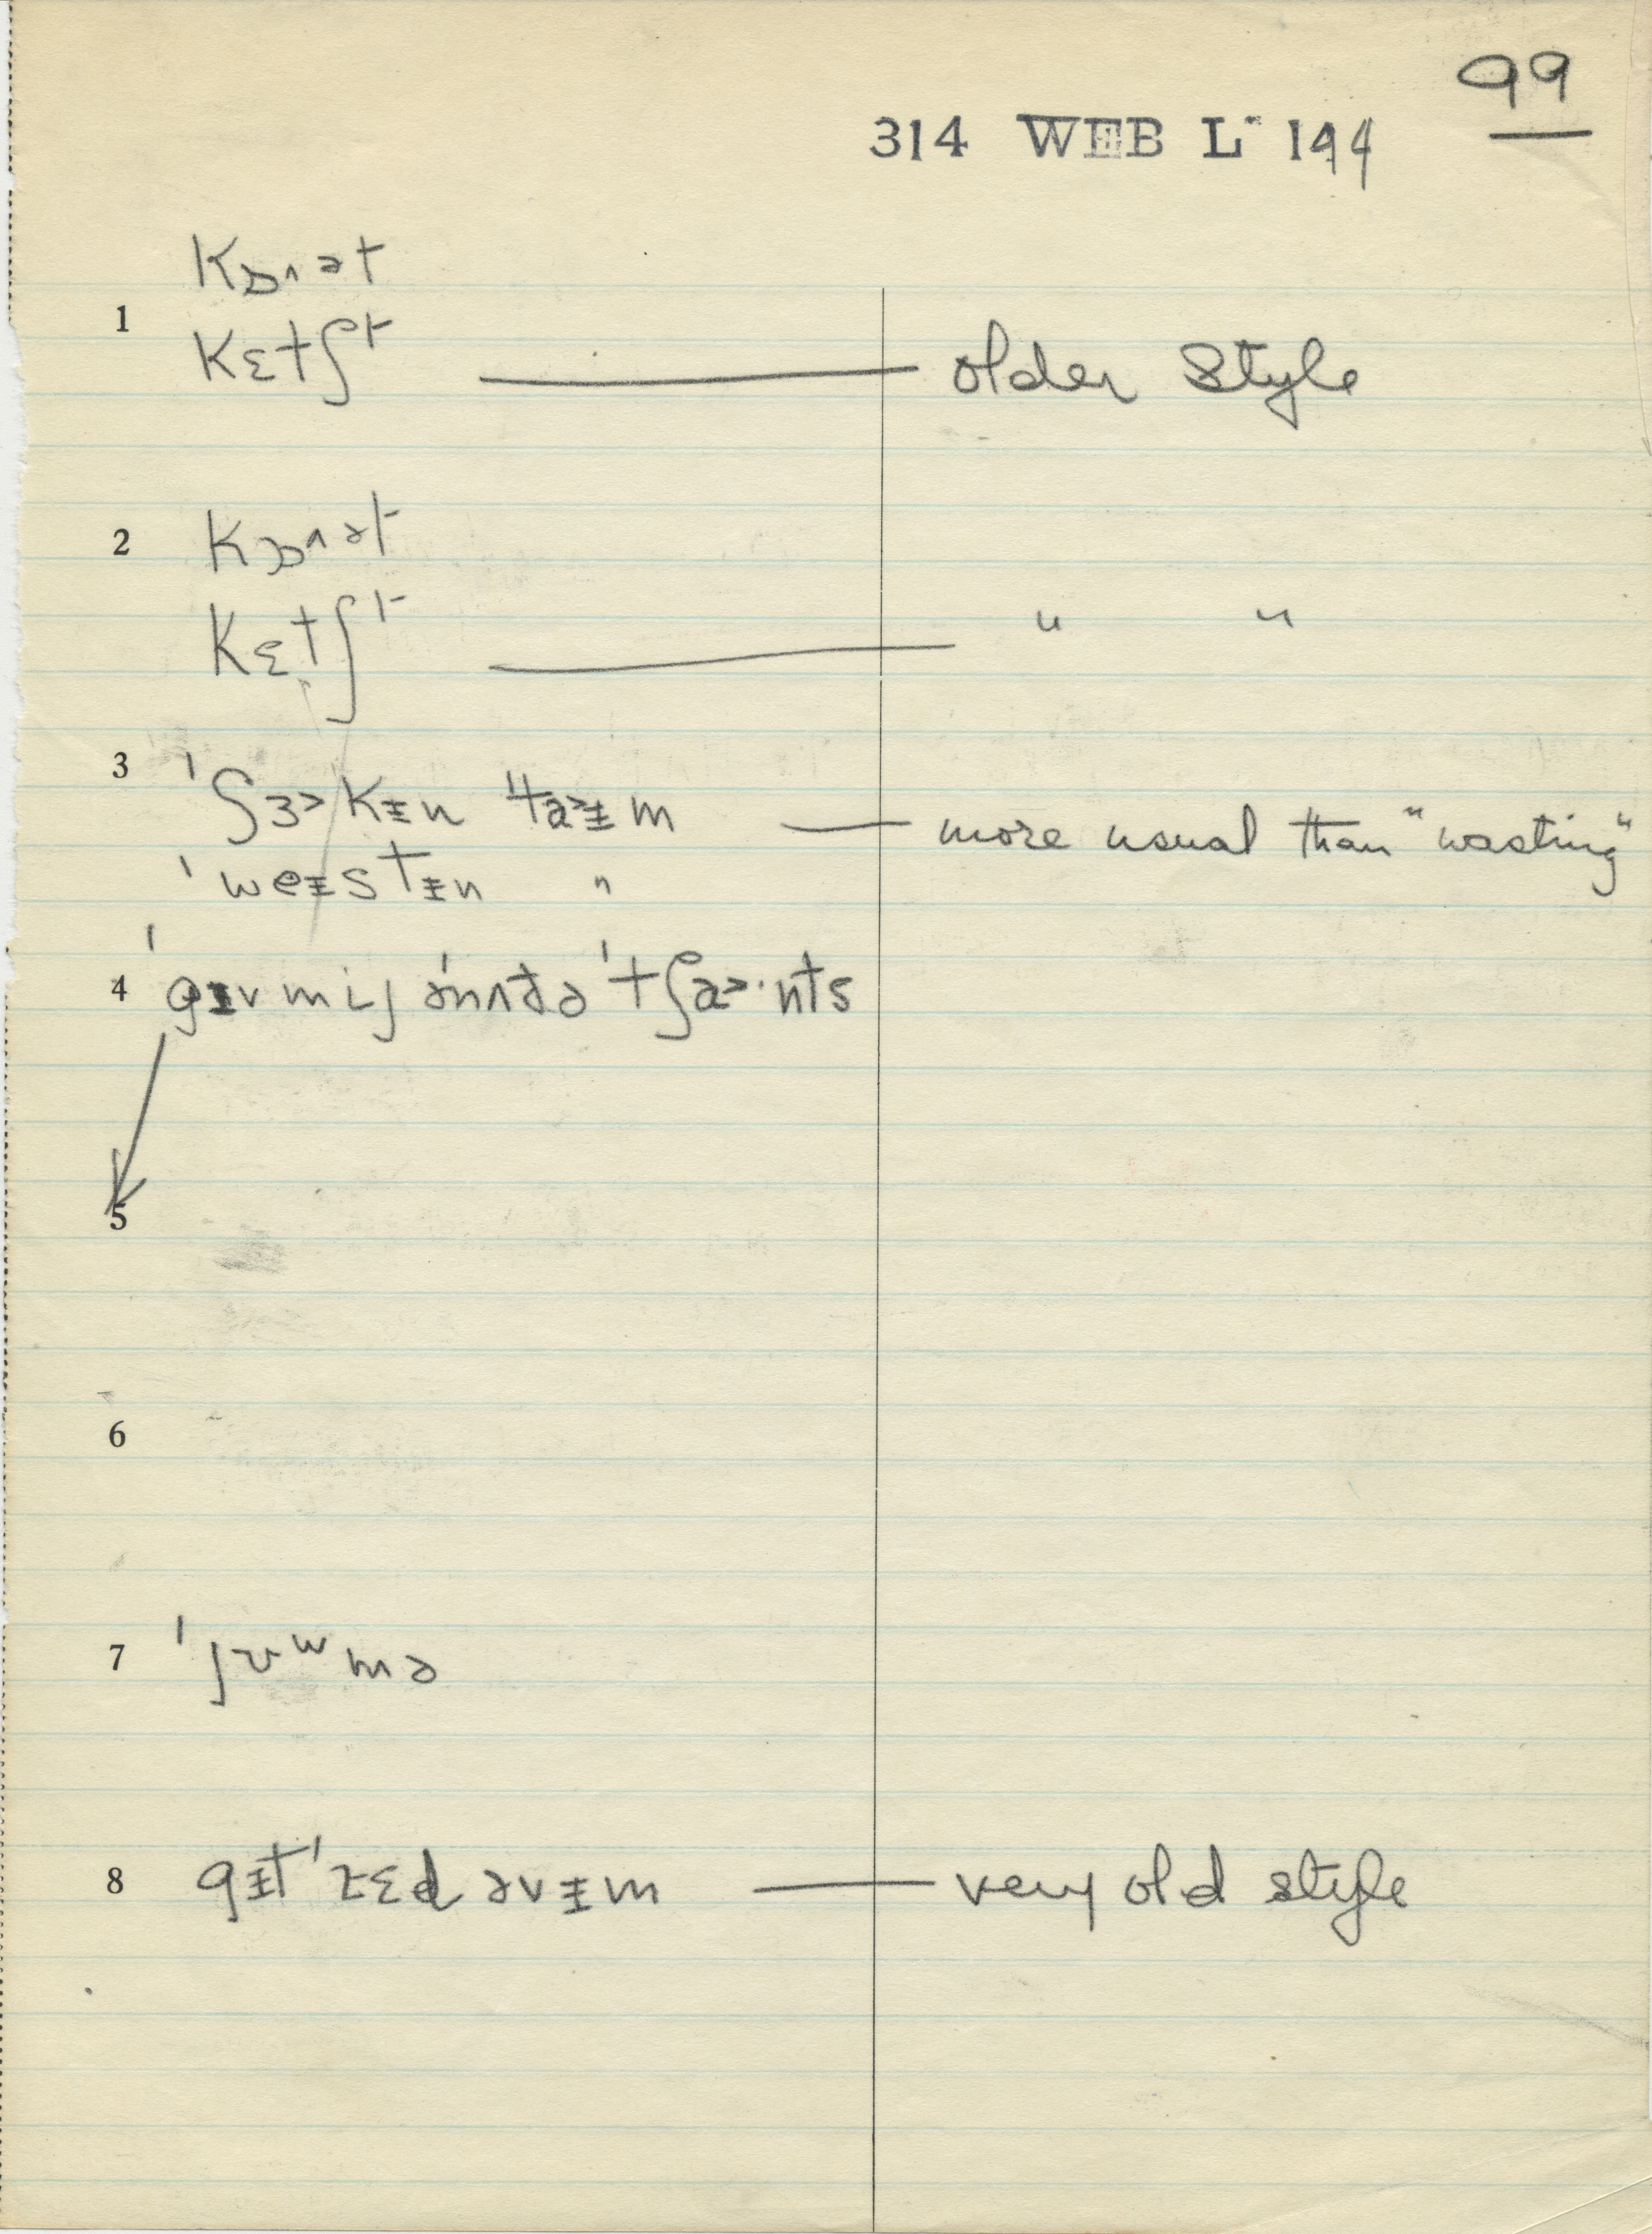 99
314 WEB L 144
kɒᶺət
1
kɛtʃt
older style
2 kɒᶺət
kɛtʃt
" "
3 ˈʃɜ˃kɪ̵n ˈta˃ɪ̵m
more usual than "wasting"
ˈweɪ̵stɪ̵n "
4 ˈgɪ̵v mij ənʌðə ˈtʃa˃·nts
5
6
7 ˈʃʊʷmə
8 gɪ̵t ˈɾɛd əvɪ̵m
very old style